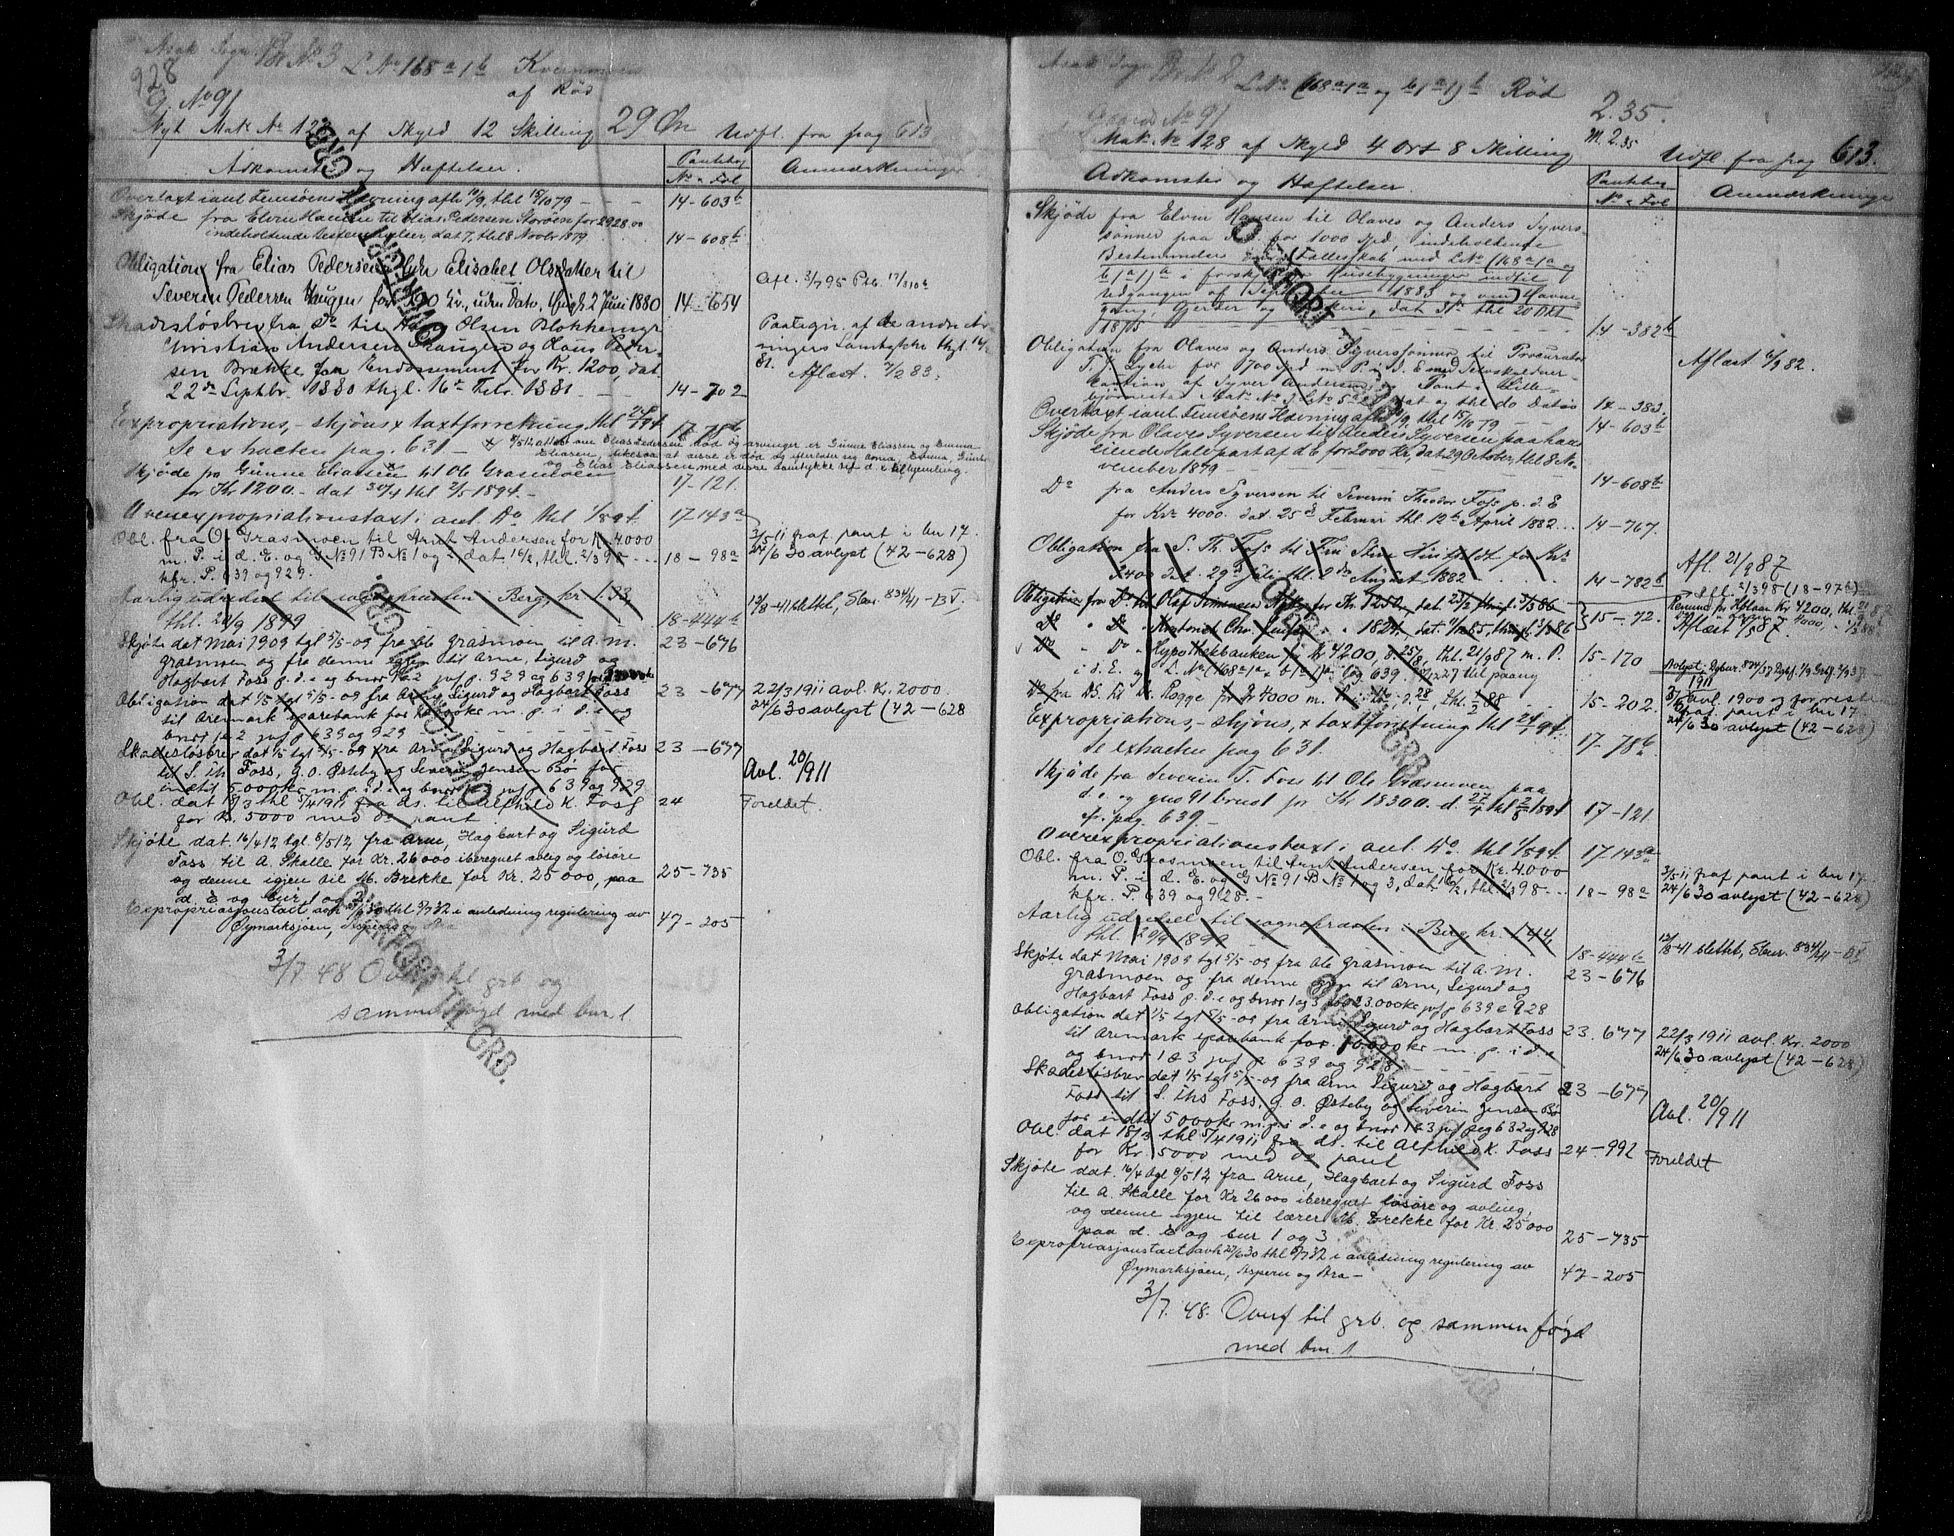 928
Asak Sogn Br No 3 L No 168 a 1 b
af Rød
G. No 91
Nyt Mat. No 12 af Skyld 12 Skilling 29 Øre Udfl. fra pag 613
Adkomster og Hæftelser.
Pantebog
No & Fol
Anmærkninger
Overtaxt i anl Femsøens Hævning afh 10/9, thl 15/10 79 14-603b
Skjöde fra Elvin Hansen til Elias Pedersen for 2928.00
indeholdende Bestemmelser, dat 7, thl 8 Novbr 1879 14-608b
Obligation fra Elias Pedersen Elisabet Olsdatter til
Severin Pedersen Haugen for 490 Kr. uden Dato, thgl 2 Juni 1880 14-654
Afl. 3/7 95 Ptb. 17/310a
Skadesløsbrev fra Do til Hans Olsen Blokkeng
Christian Andersen Haugen og Olaus Peder-
sen Brække for Endossement for Kr. 1200, dat
22de Septbr. 1880 thgl. 16de Febr. 1881. 14-702
Paategn. af de andre Ar-
vingers Samtykke thgl. 14/
81.
Aflæst. 7/2 83.
Expropriations, skjøns & taxtforretning thl 24/ 94 17-78b
Se extracten pag. 631 - x 4/5 12 attest om Elias Pedersen Rød og arvinger er Gunne Eliassen og Emma
Eliasen, likesaa at avsve er død og efterlater sig Anna, Emma, Gunne
og Elias Eliassen med deres samtykke
Skjøde fra Gunne Eliassen til Ole Grasmoen
for Kr 1200. - dat 30/4 thl 2/5 1894. - 17-121.
Overexpropriationstaxt i anl. Do thl 1/8 94. 17-143a
Obl. fra O. Grasmoen til Arnt Andersen for Kr. 4000
m. P. i d. E. og G No 91 B No 1 og 2, dat. 16/2, thl. 2/3 98 18 - 98a
kfr. P. 639 og 929.
3/5 11 fraf pant i bn 17.
24/6 30 avlyst (42-628)
Aarlig udredsel til sognepræsten i Berg, kr. 1.33,
thl. 20/9 1899 18-444b
13/8-41 slettet, Stev. 834/41-BI.
Skjøte dat Mai 1909 tgl 5/5-09 fra Ole Grasmoen til A. M. 23-676
Grasmoen og fra denne igjen til Arne, Sigurd og
Hagbart Foss p. d. e og bnr 1 & 2 jvf p. 929 og 639
Obligation dat 1/5 tgl 5/5-09 fra Arne, Sigurd og Hagbart Foss 23-677
til Aremark sparebank for 10000 kr m. p. i d. e og
bnr 1 & 2 jvf p 639 og 929
22/3 1911 avl. Kr. 2000.
24/6 30 avlyst (42-628
Skadesløsbrev dat 1/5 tgl 5/5-09 fra Arne Sigurd og Hagbart Foss 23-677
til S. Ths Foss, G. O. Østeby og Severin Jensen Bø for
indtil 5000 kr m. p. i d. e og bnr 1 & 2 jvf p 639 og 929
Avl. 20/9 11
Obl. dat 18/3 thl 5/4 1911 fra ds. til Alfhild K. Foss 24
for Kr. 5000 med do pant.
Foreldet.
Skjøte dat. 16/4 12 tgl. 8/5 12, fra Arne, Hagbart og Sigurd
Foss til A. Skalle for Kr. 26000 iberegnet avling og løsøre
og denne igjen til M. Brekke for Kr. 25000, paa 25-735
d. E og bnr. 1 og 2.
Expropriasjonstaxt avh 27/6 30 thl 9/7 32 i anledning regulering av 47-205
Øymarksjøen, Aspern og Ara
3/7.48 Overf. til grb og
sammenføyd med bnr. 1
OVERFØRT TIL GRB.
OVERFØRT TIL GRB.
OVERFØRT TIL GRB.
Asak Sogn Br. No 2 L No (168 a 1 a og b 1 a 1) b Rød
Gaard No 91
2.35.
M. 2.35
Mat. No 128 af Skyld 4 Ort 8 Skilling Udfl fra pag 613.
Adkomster og Hæftelser.
Pantebog
No & Fol
Anmærkninger
Skjöde fra Elvin Hansen til Olaves og Anders Syvers-
sønner paa d. E. for 1000 Spd, indeholdende
Bestemmelser om Fælleskab med L No (168 a 1 a og
b 1 a 1) a i forskjellige Husebygninger indtil
Udgangen af September 1883 og om Havne-
gang, Gjerder og, dat 31te thl 20 Okt
1875 14-382b
Obligation fra Olaves og Anders Syverssønner til Procurator
T. J. Lyche for 1700 Spd m. P. i d. E med Selvskyldner-
caution af Syver Andersen og Pant i Lille-
bjørnestad Mat. No 3 L No 5 a dat og thl do Dato 14-383.
Aflæst 4/9 82.
Overtaxt i anl Femsøens Hævning afh 10/9, thl 15/10 79 14-603b
Skjøde fra Olaves Syversen til Anders Syversen paa hans
eiende Halvpart af d. E for 2000 Kr, dat 29 October, thl 8 No-
vember 1879 14-608b
Do fra Anders Syversen til Severin Theodor Foss p. d. E
for Kr. 4000. dat. 25de Februar thl. 12te April 1882 14-767.
Obligation fra S. Th. Foss til Fru Stine Huitfeldt for Kr.
2400 dat. 29de Juli thl. 2de August 1882 14-782b
Afl. 21/9 87
Obligation fra Do til Olaf Simonsen for Kr. 1252, dat. 23/2 thgl. 3/3 86 15-72.
Do " Do Chr. " 1824, dat. 11/2 85, thgl 3/3 86
Aflæst 1/5 87.
Do " Do Hypothekbanken for Kr. 4200, d. 25/8, thl. 21/9 87 m. P. 15-170
i d. E. og L. No (168 a 1 a, b 1 a log 639
Do fra Do. til Kr. Rogge for Kr 4000 m. P., thl. 1/2 88 15-202.
3/5 11 avl. 1900 og for resten
fraf. pant i bn 17
24/6 30 avlyst (42-628)
Expropriations, skjøns, & taxtforretning thl 24/ 94. 17-78b
Se extracten pag 631.
Skjøde fra Severin T. Foss til Ole Grasmoen paa
d. e. og gno 91 bno 1 for Kr 18300. d. 27/4 thl 2/5 1894 17-121.
cfr. pag. 639 -
Overexpropriationstaxt i anl. Do. thl 1/8 94. 17 143a
Obl. fra O. Grasmoen til Arnt Andersen, for Kr. 4000
m. P. i d. E. og G No 91 B No 1 og 3, dat. 16/2, thl. 2/3 98 18-98a
kfr. P. 639 og 928.
3/5 11 fraf pant i bn 17.
24/6 30 avlyst (42-628)
Aarlig udredsel til sognepræsten i Berg kr. 1.44,
thl. 20/9 1899 18-444b
13/8-41 slettet, Stev. 834/41-BI
Skjøte dat Mai 1909 tgl 5/5-09 fra Ole Grasmoen til A. M. 23-676
Grasmoen og fra denne igjen til Arne, Sigurd og
Hagbart Foss p. d. e og bnr 1 og 3 for 23.000 kr jvf p 639 & 928
Obligation dat 1/5 tgl 5/5-09 fra Arne Sigurd og Hagbart Foss 23.677
til Aremark sparebank for 10000 kr m. p. i d e
og bnr 1 & 3 jvf p 639 og 928
22/3 1911 avl. Kr. 2000
24/6 30 avlyst (42-628)
Skadesløsbrev dat 1/5 tgl 5/5-09 fra Arne Sigurd og Hagbart 23-677
Foss til S. Ths Foss, G. O. Østeby og Severin Jensen Bø
for indtil 5000 kr m. p. i d. e og bnr 1 & 3 jvf pag 632 og 928
Avl. 20/9 11
Obl. dat 18/3 thl 5/4 1911 fra ds. til Alfhild K. Foss 24-992
for Kr 5000 med do pant
Foreldet
Skjøte dat. 16/4 tgl 8/5 12 fra Arne, Hagbart og Sigurd Foss
til A. Skalle for Kr 26000 iberegnet løsøre og avling,
og denne igjen til lærer M. Brekke for Kr. 25000
paa d. E og bnr 1 og 3. 25-735
Expropriasjonstaxt avh 27/6 30 thl 9/7 32 i anledning regulering av
Øymarksjøen, Aspern og Ara - 47-205
3/7.48. Overf til grb. og sammenføyd
med bnr. 1
OVERFØRT TIL GRB.
OVERFØRT TIL GRB.